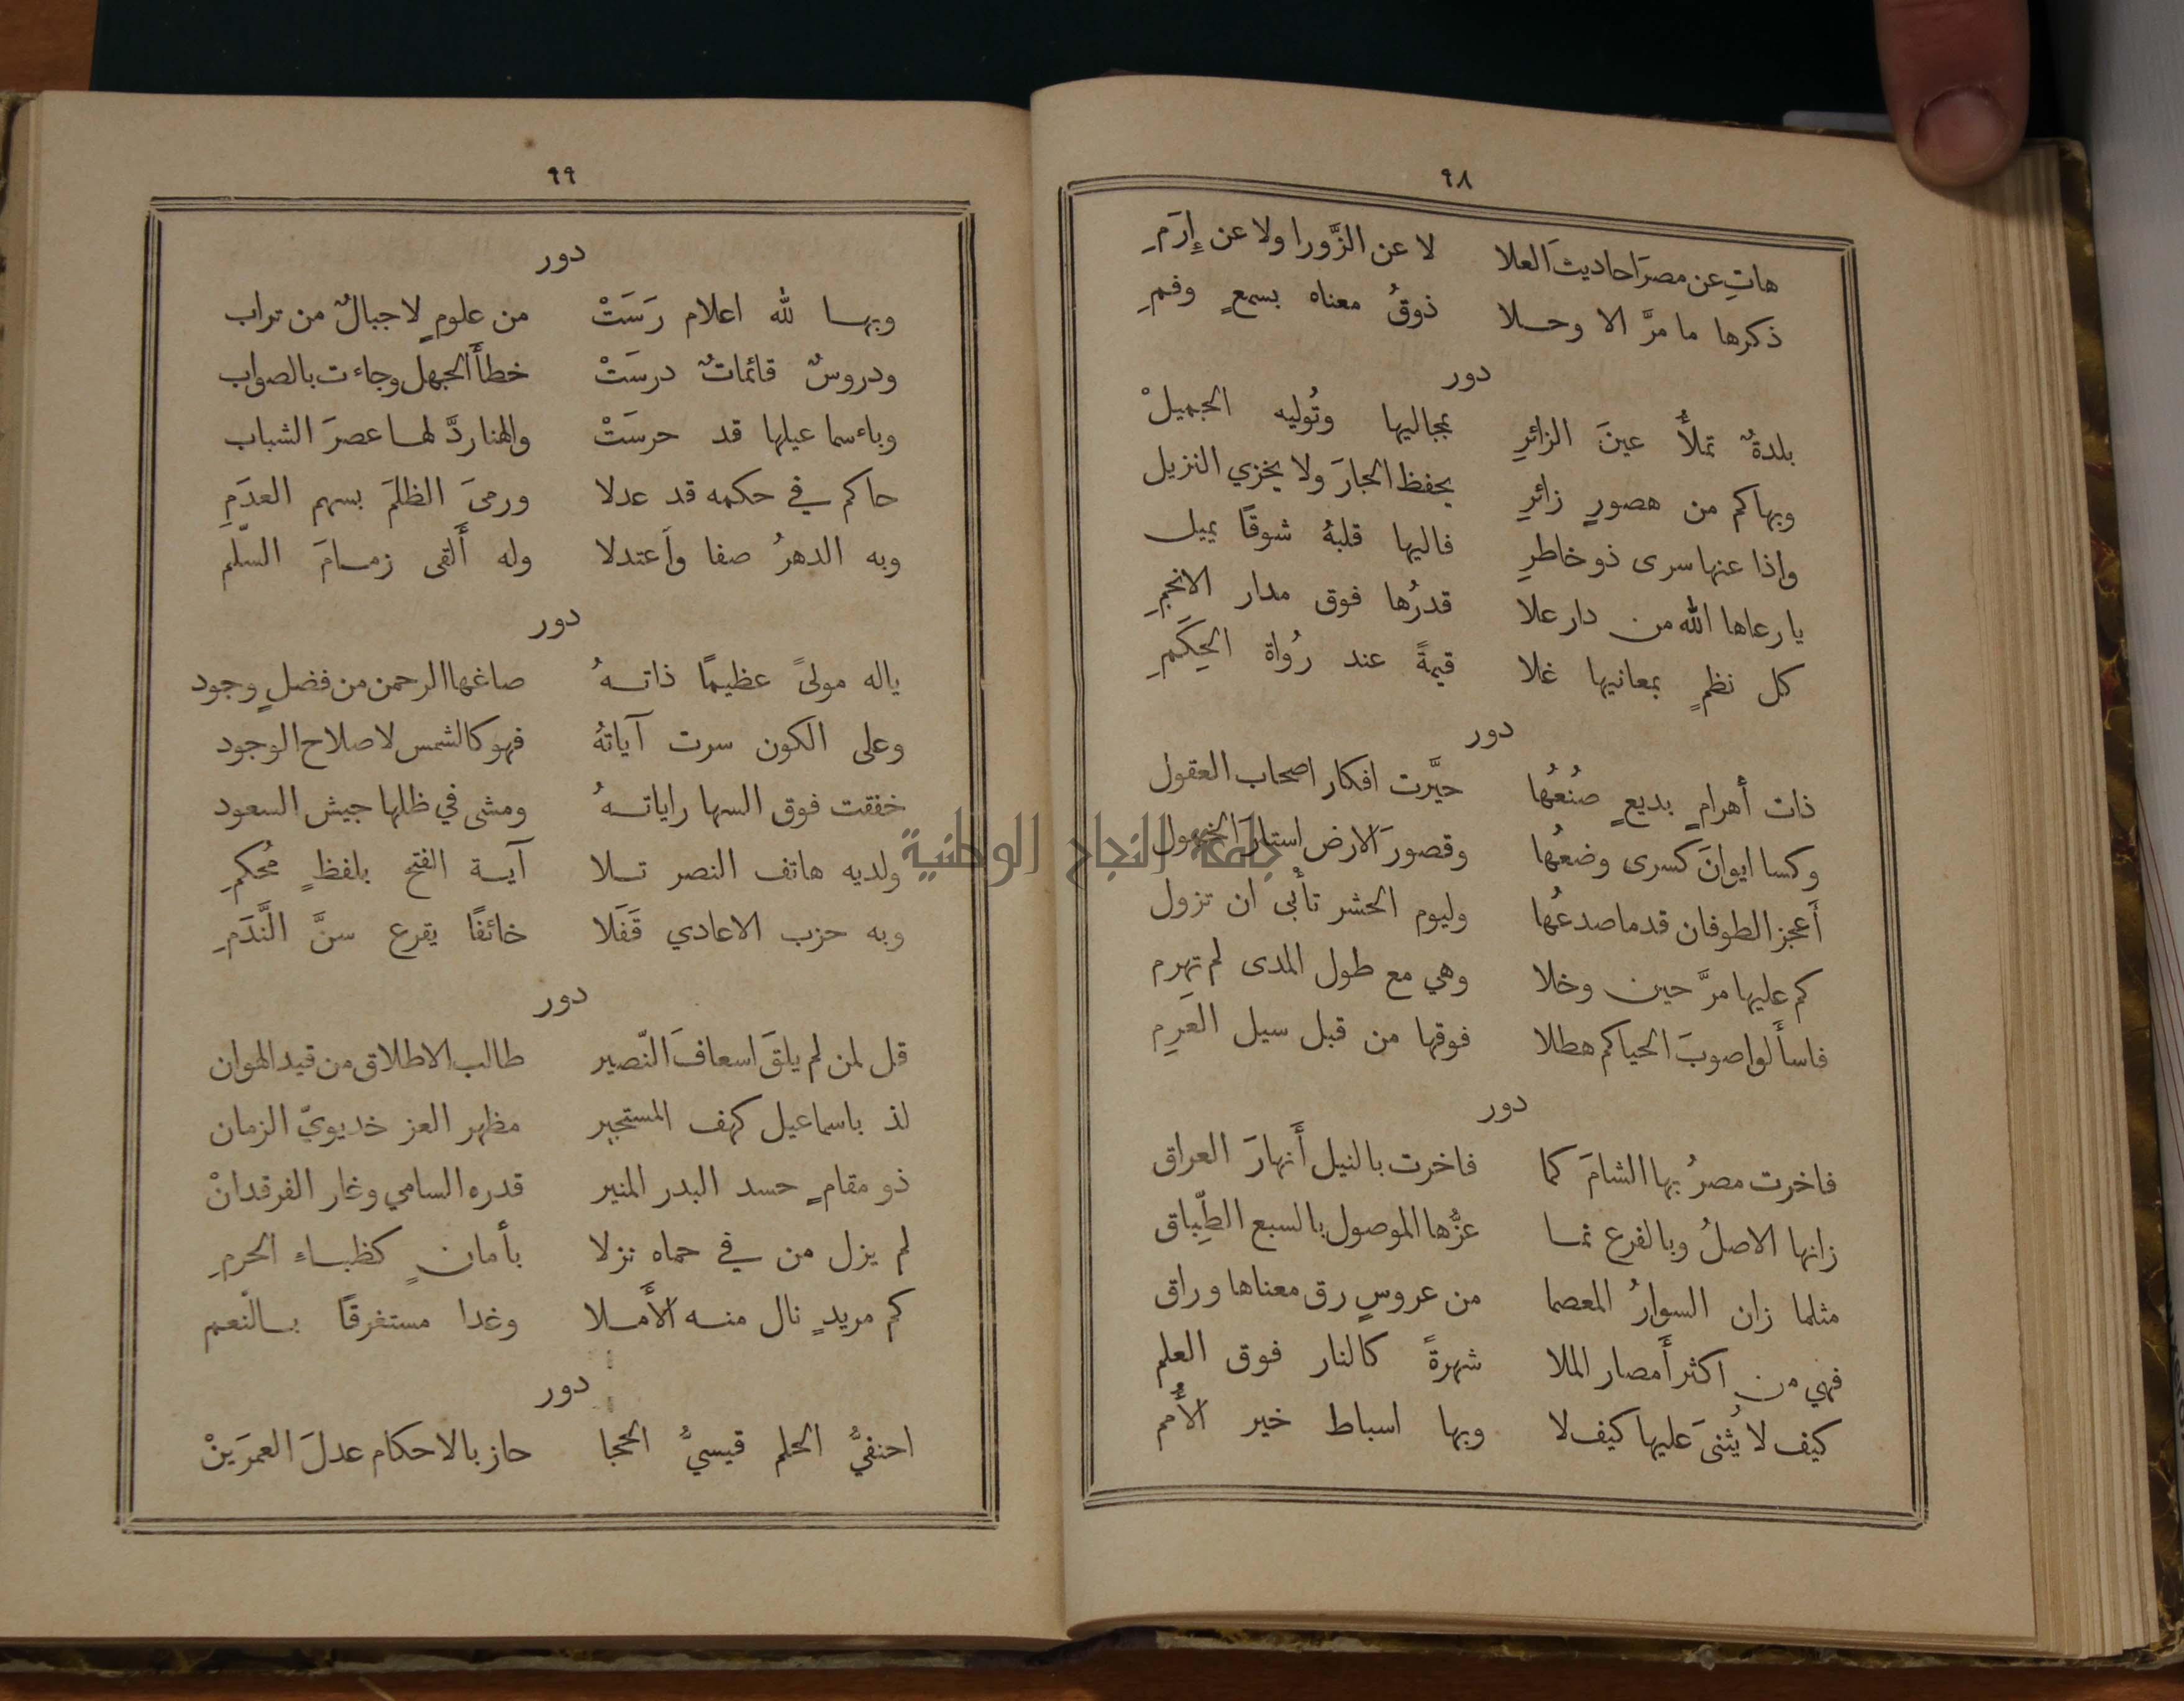 ٩٨
هاتِ عن مصرَ احاديثَ العلا لا عن الزَّورا ولا عن إِرَمِ
ذكرها ما مرَّ الا وحلا ذوقُ معناه بسمعٍ وفمِ
دور
بلدةٌ تملأُ عينَ الزائرِ بمجاليها وتُوليه الجميلْ
وبها كم من هصورٍ زائرِ يحفظ الجارَ ولا يخزي النزيل
واذا عنها سرى ذو خاطرِ فاليها قلبهُ شوقًا يميل
يا رعاها الله من دار علا قدرُها فوق مدار الانجمِ
كل نظمٍ بمعانيها غلا قيمةً عند رُواة الحِكَمِ
دور
ذات أهرامٍ بديعٍ صُنعُها حيَّرت افكار اصحاب العقول
وكسا ايوانَ كسرى وضعُها وقصورَ الارض استارَ الخمول
أَعجز الطوفان قدما صدعُها وليوم الحشر تأْبى ان تزول
كم عليها مرَّ حين وخلا وهي مع طول المدى لم تهرم
فاسأَلوا صوبَ الحيا كم هطلا فوقها من قبل سيل العَرِمِ
دور
فاخرت مصرُ بها الشامَ كما فاخرت بالنيل أَنهارَ العراق
زانها الاصلُ وبالفرع نما عزُّها الموصول بالسبع الطِّباق
مثلما زان السوارُ المعصما من عروسٍ رق معناها وراق
فهي من اكثر أَمصار الملا شهرةً كالنار فوق العلم
كيف لا يُثنىَ عليها كيف لا وبها اسباط خير الأُمم
٩٩
دور
وبها لله اعلام رَسَتْ من علومٍ لا جبالٌ من تراب
ودروسٌ قائماتٌ درسَتْ خطأَ الجهل وجاءت بالصواب
وباءسماعيلها قد حرسَتْ والهنا ردَّ لها عصرَ الشباب
حاكم في حكمه قد عدلا ورمىَ الظلمَ بسهم العدَمِ
وبه الدهرُ صفا وأَعتدلا وله أَلقى زمامَ السلّم
دور
ياله مولىً عظيمًا ذاتهُ صاغها الرحمن من فضلٍ وجود
وعلى الكون سرت آياتهُ فهو كالشمس لاصلاح الوجود
خفقت فوق السها راياتهُ ومشى في ظلها جيش السعود
ولديه هاتف النصر تلا آية الفتح بلفظٍ مُحكمِ
وبه حزب الاعادي قَفَلا خائفًا يقرع سنَّ النَّدَمِ
دور
قل لمن لم يلقَ اسعافَ النّصير طالب الاطلاق من قيد الهوان
لذ باسماعيل كهف المستجير مظهر العز خديويّ الزمان
ذو مقامٍ حسد البدر المنير قدره السامي وغار الفرقدانْ
لم يزل من في حماه نزلا بأمانٍ كظباءِ الحرمِ
كم مريدٍ نال منه الأَملا وغدا مستغرقًا بالنّعم
دور
احنفيُّ الحلم قيسيُّ الحجا حاز بالاحكام عدلَ العمرَينْ
جامعة النجاح الوطنية